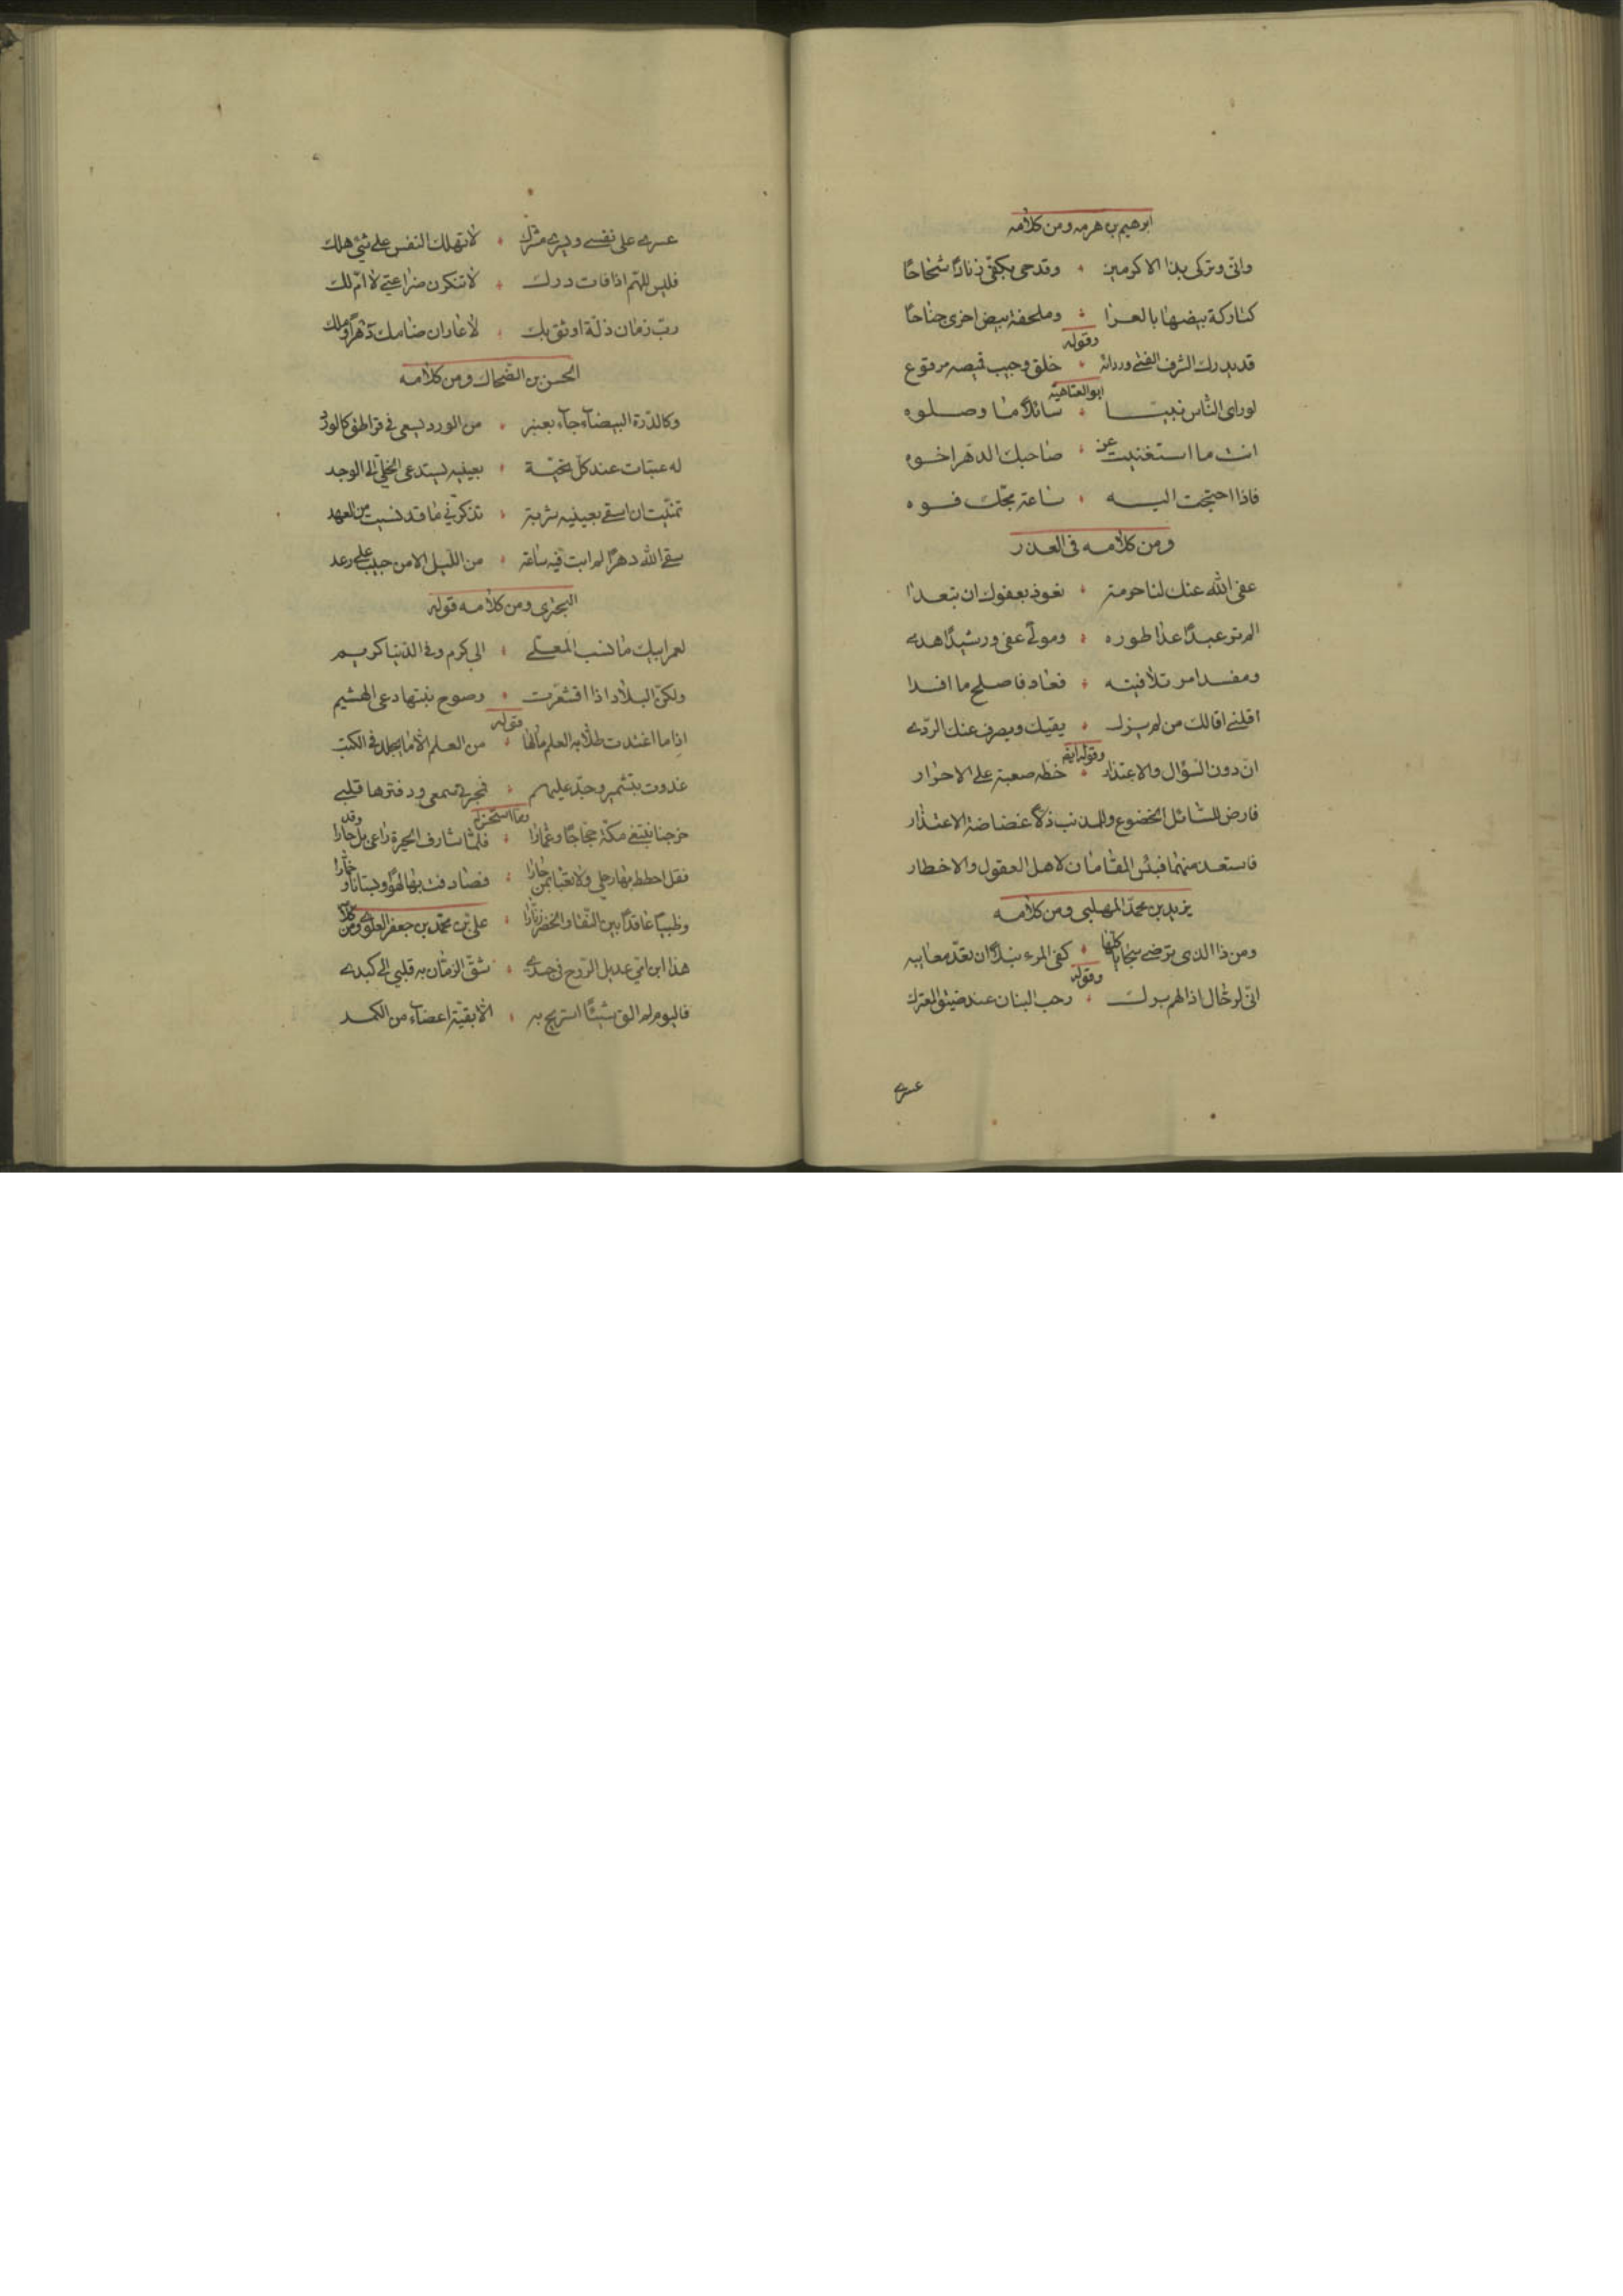 ابرهيم بن هرمه ومن كلامه
وانى وتركى بذا الاكرمين وقدحى بكفّى زنادًا شحاحًا
كتاركة بيضها بالعرا وملحفة بيض اخرى جناحًا
وقوله
قد يدرك الشرف الفتى ورداؤه خلق وجيب قميصه مرقوع
ابو العتاهية
لوراى النّاس نبيّا سائلاً ما وصلوه
انت ما استغنيت عن صاحبك الدّهر اخوه
فاذا احتجت اليه ساعة مجّك فوه
ومن كلامه فى العذر
عفى الله عنك لنا حرمة نعوذ بعفوك ان تبعدا
الم تر عبدًا عدا طوره ومولى عفى ورشيدًا هدى
ومفسد امر تلافيته فعاد فاصلح ما افسدا
اقلنى اقالك من لم يزل يقيك ويصرف عنك الرّدى
وقوله ايضا
انّ دون السّؤال والاعتذار خطّه صعبة على الاحرار
فارض للسّائل الخضوع وللمذنب ذلا غضاضة الاعتذار
فاستعد منهما فبئس المقامان لاهل العقول والاخطار
يزيد بن محمّد المهلبى ومن كلامه
ومن ذا الذى ترضى سجاياه كلّها كفى المرء نبلاً ان تعدّ معايبه
وقوله
انّى لرحّال اذا الهم برك رحب البنان عند ضيق المعترك
عسرى
عسرى على نفسى ويسرى مشترك لا تهلك النفس على شىء هلك
فليس للهّم اذا فات درك لا تنكرن ضراعتى لا امّ لك
ربّ زمان ذلّة اوثق بك لا عار ان ضامك دهرًا وملك
الحسن بن الضحاك ومن كلامه
وكالدّرة البيضاء جاء بعنبر من الورد يسعى فى قراطق كالورد
له عبثات عند كلّ تحيّة بعينيه يستدعى الخلىّ الى الوجد
تمنّيت ان اسقى بعينيه شربة تذكّرنى ما قد نسيت من العهد
سقى الله دهرًا لم ابت فيه ساعة من الليل الا من حبيب على وعد
البحترى ومن كلامه قوله
لعمر ابيك ما نسب المعلّى الى كرم وفى الدّنيا كريم
ولكنّ البلاد اذا اقشعرّت وصوح نبتها رعى الهشيم
وقوله
اذا ما اغتدت طلّابة العلم مالها من العلم الّا ما يجلد فى الكتب
غدوت بتشمير وجدّ عليهم فمحبرتى سمعى ودفترها قلبى
وقد
خرجنا نبتغى مكّة حجّاجًا وعمّارا فلمّا شارف الحيرة راعى بل حارا
فقل احطط بها رحلى ولا تعبا بمن حارا فصادفت بها لهوًا وبستانا وخمّارا
وظبيًا عاقدًا بين النّقا والخصر زنّارا
علىّ بن محمّد بن جعفر العلوى ومن كلامه
هذا ابن امّى عديل الرّوح فى جسدى شقّ الزّمان به قلبى الى كبدى
فاليوم لم الق شيئًا استريح به الّا بقيّة اعضاء من الكمد